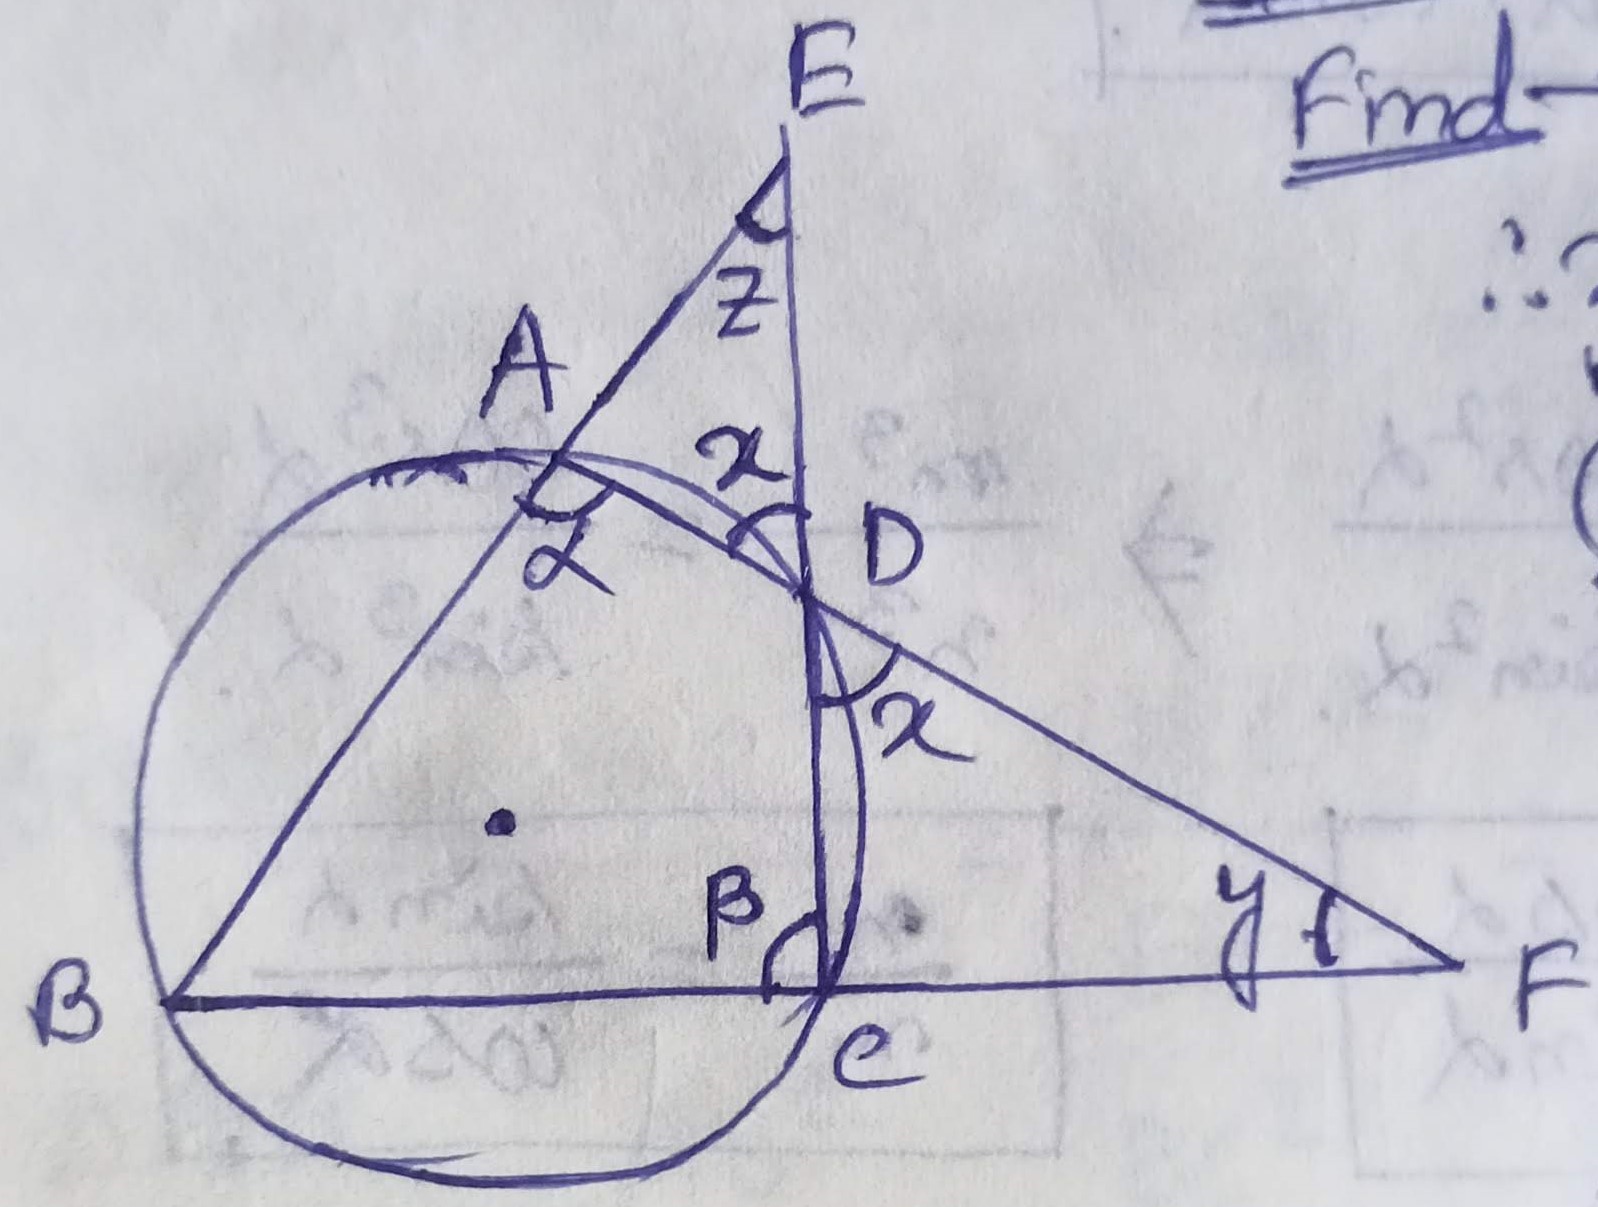 E
Find
∴
z
A
x
α
D
x
β
y
B
C
F